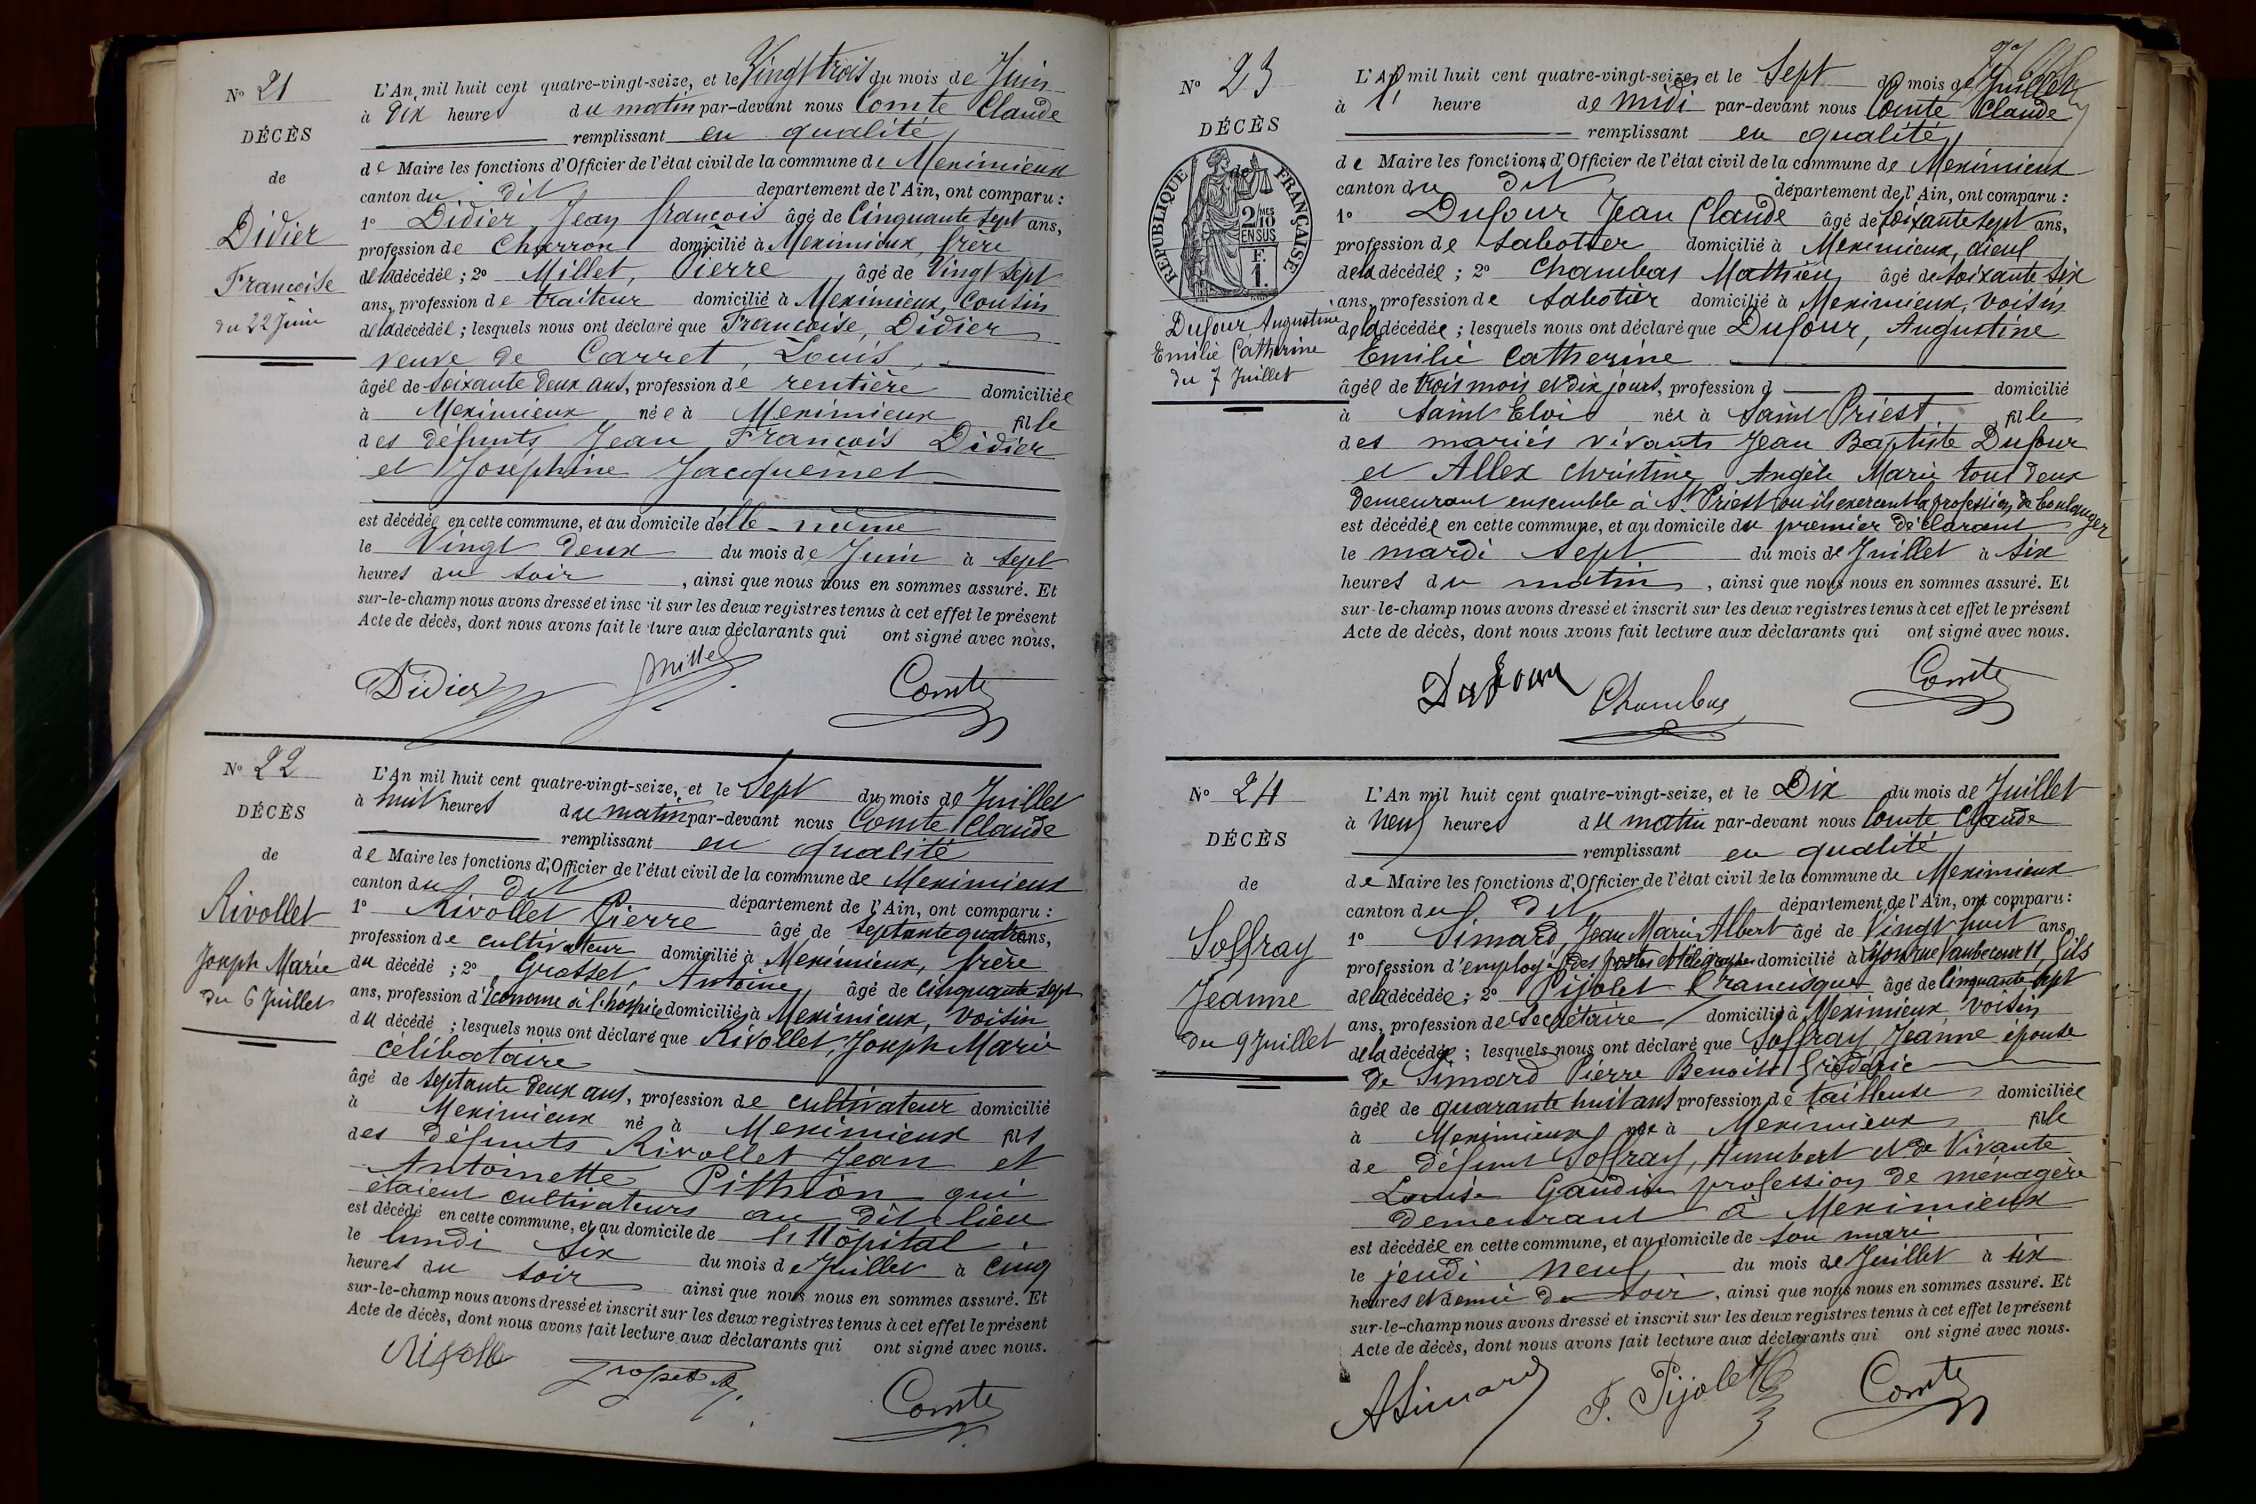 N° 21
DÉCÈS
de
Didier
Françoise
du 22 Juin
L'An mil huit cent quatre-vingt-seize, et le Vingt trois du mois de Juin
à Dix heures du matin par-devant nous Comte Claude
remplissant en qualité
de Maire les fonctions d'Officier de l'état civil de la commune de Meximieux
canton du dit département de l'Ain, ont comparu :
1° Didier, Jean françois âgé de Cinquante sept ans,
profession de Charron domicilié à Meximieux, frère
de la décédée ; 2° Millet, Pierre âgé de Vingt sept
ans, profession de traiteur domicilié à Meximieux, Cousin
de la décédée ; lesquels nous ont déclaré que Françoise, Didier
veuve de Carret, Louis,
âgée de soixante deux ans, profession de rentière domiciliée
à Meximieux née à Meximieux fille
des défunts Jean François Didier
et Joséphine Jacquemet
est décédée en cette commune, et au domicile d'elle-même
le Vingt deux du mois de Juin à sept
heures du soir, ainsi que nous nous en sommes assuré. Et
sur-le-champ nous avons dressé et inscrit sur les deux registres tenus à cet effet le présent
Acte de décès, dont nous avons fait lecture aux déclarants qui ont signé avec nous.
Didier Millet Comte
N° 22
DÉCÈS
de
Rivollet
Joseph Marie
du 6 Juillet
L'An mil huit cent quatre-vingt-seize, et le Sept du mois de Juillet
à huit heures du matin par-devant nous Comte Claude
remplissant en qualité
de Maire les fonctions d'Officier de l'état civil de la commune de Meximieux
canton du dit département de l'Ain, ont comparu :
1° Rivollet Pierre âgé de septante quatre ans,
profession de cultivateur domicilié à Meximieux, frère
du décédé ; 2° Grosset, Antoine âgé de Cinquante sept
ans, profession d'économe à l'hospice domicilié à Meximieux, Voisin
du décédé ; lesquels nous ont déclaré que Rivollet, Joseph Marie
célibataire
âgé de septante deux ans, profession de cultivateur domicilié
à Meximieux né à Meximieux fils
des défunts Rivollet Jean et
Antoinette Pithion qui
étaient cultivateurs au dit lieu
est décédé en cette commune, et au domicile de l'Hôpital
le lundi six du mois de Juillet à cinq
heures du soir ainsi que nous nous en sommes assuré. Et
sur-le-champ nous avons dressé et inscrit sur les deux registres tenus à cet effet le présent
Acte de décès, dont nous avons fait lecture aux déclarants qui ont signé avec nous.
Comte
N° 23
DÉCÈS
de
RÉPUBLIQUE FRANÇAISE
2/10 MES
EN SUS
F.
1.
Dufour Augustine
Emilie Catherine
du 7 Juillet
L'An mil huit cent quatre-vingt-seize, et le Sept du mois de Juillet
à 1 heure de midi par-devant nous Comte Claude
remplissant en qualité
de Maire les fonctions d'Officier de l'état civil de la commune de Meximieux
canton du dit département de l'Ain, ont comparu :
1° Dufour Jean Claude âgé de soixante sept ans,
profession de sabotier domicilié à Meximieux, aieul
de la décédée ; 2° Chambas Mathieu âgé de soixante six
ans, profession de sabotier domicilié à Meximieux, voisin
de la décédée ; lesquels nous ont déclaré que Dufour, Augustine
Emilie Catherine
âgée de trois mois et dix jours, profession d domicilié
à Saint Eloi née à Saint Priest fille
des mariés vivants Jean Baptiste Dufour
et Allex Christine Angèle Marie tous deux
demeurant ensemble à St Priest ou ils exercent la profession de boulanger
est décédée en cette commune, et au domicile du premier déclarant
le mardi sept du mois de Juillet à six
heures du matin, ainsi que nous nous en sommes assuré. Et
sur-le-champ nous avons dressé et inscrit sur les deux registres tenus à cet effet le présent
Acte de décès, dont nous avons fait lecture aux déclarants qui ont signé avec nous.
Dufour Chambas Comte
N° 24
DÉCÈS
de
Soffray
Jeanne
du 9 Juillet
L'An mil huit cent quatre-vingt-seize, et le Dix du mois de Juillet
à neuf heures du matin par-devant nous Comte Claude
remplissant en qualité
de Maire les fonctions d'Officier de l'état civil de la commune de Meximieux
canton du dit département de l'Ain, ont comparu :
1° Simard, Jean Marie Albert âgé de Vingt huit ans,
profession d'employé des postes et télégraphes domicilié à Lyon rue Vaubecour 11 fils
de la décédée ; 2° Pijolet Francisque âgé de Cinquante sept
ans, profession de Secrétaire domicilié à Meximieux voisin
de la décédée ; lesquels nous ont déclaré que Soffray Jeanne épouse
de Simard Pierre Benoit Frédéric
âgée de quarante huit ans profession de tailleuse domiciliée
à Meximieux née à Meximieux fille
de défunt Soffray, Humbert et de Vivante
Louise Gaudin profession de ménagère
demeurant à Meximieux
est décédée en cette commune, et au domicile de son mari
le jeudi neuf du mois de Juillet à six
heures et demie du soir, ainsi que nous nous en sommes assuré. Et
sur-le-champ nous avons dressé et inscrit sur les deux registres tenus à cet effet le présent
Acte de décès, dont nous avons fait lecture aux déclarants qui ont signé avec nous.
ASimard F. Pijolet Comte